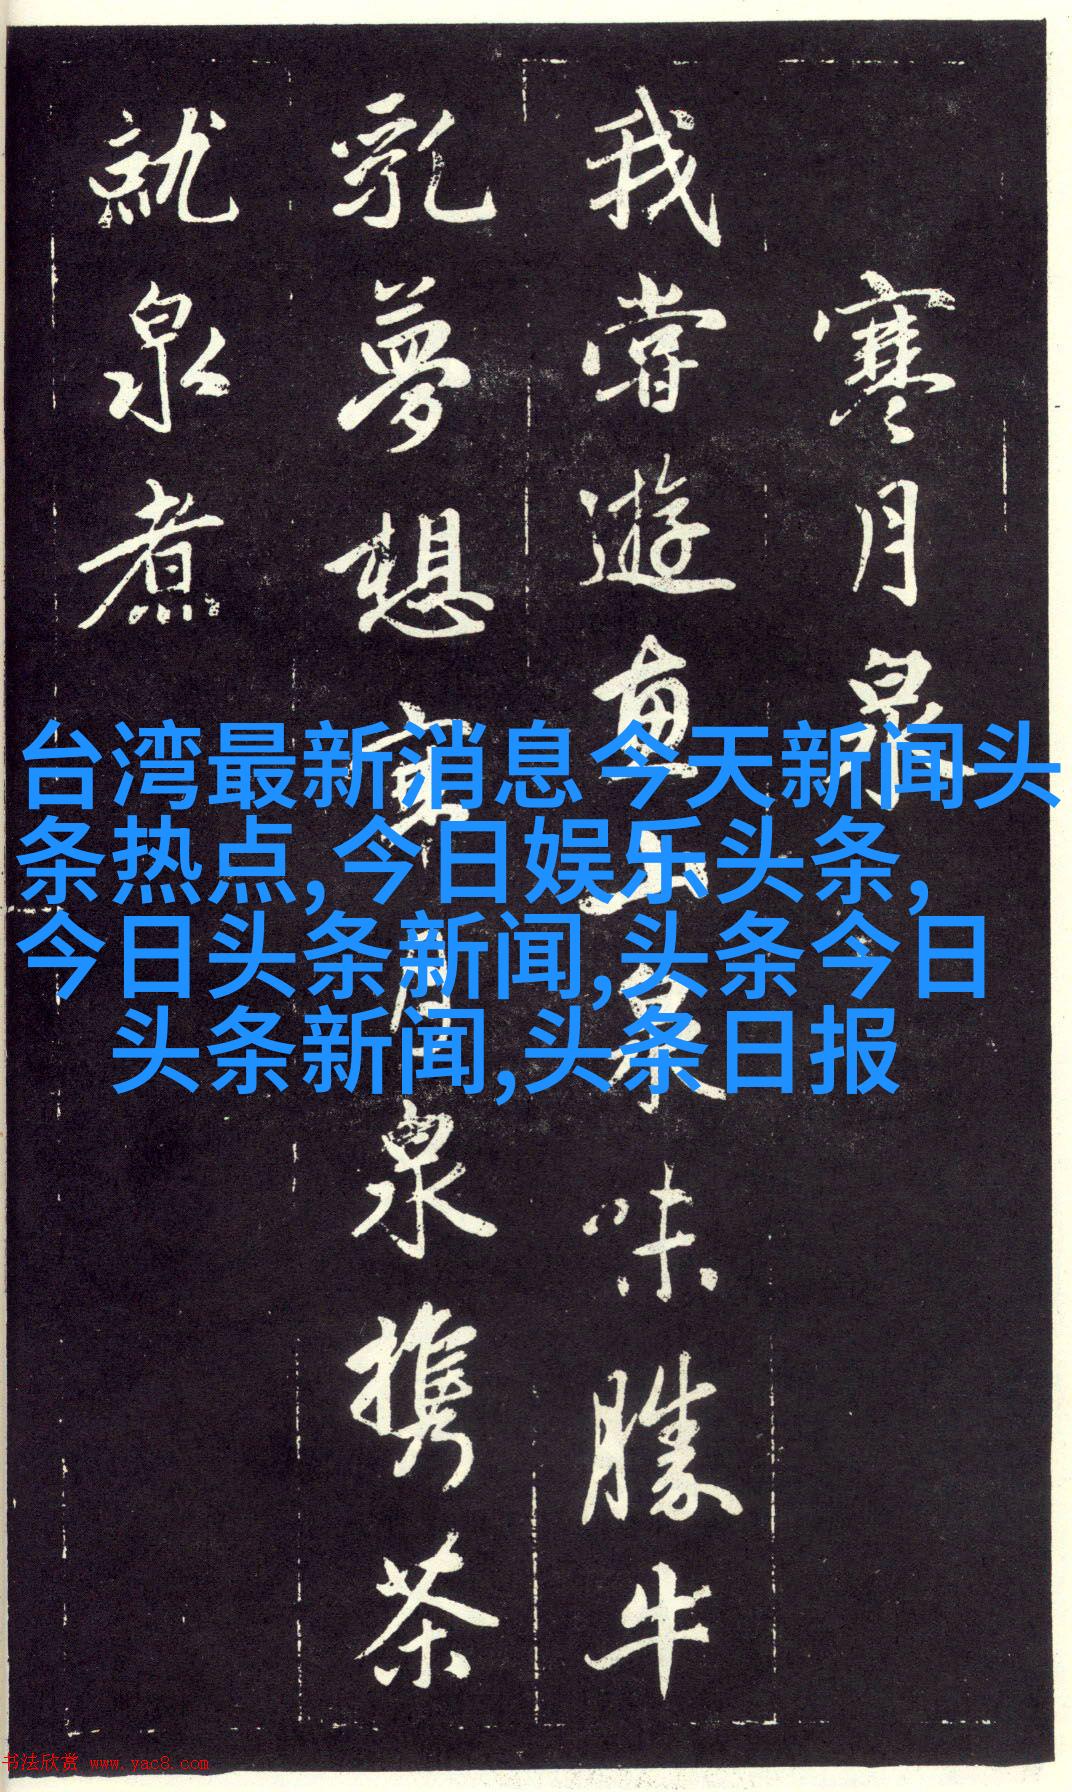 寒月泉
我嘗遊惠山泉味勝牛
乳夢想寒月泉携茶
就泉煮
台湾最新消息今天新闻头
条热点,今日娱乐头条,
今日头条新闻,头条今日
头条新闻,头条日报
书法欣赏 www.yac8.com